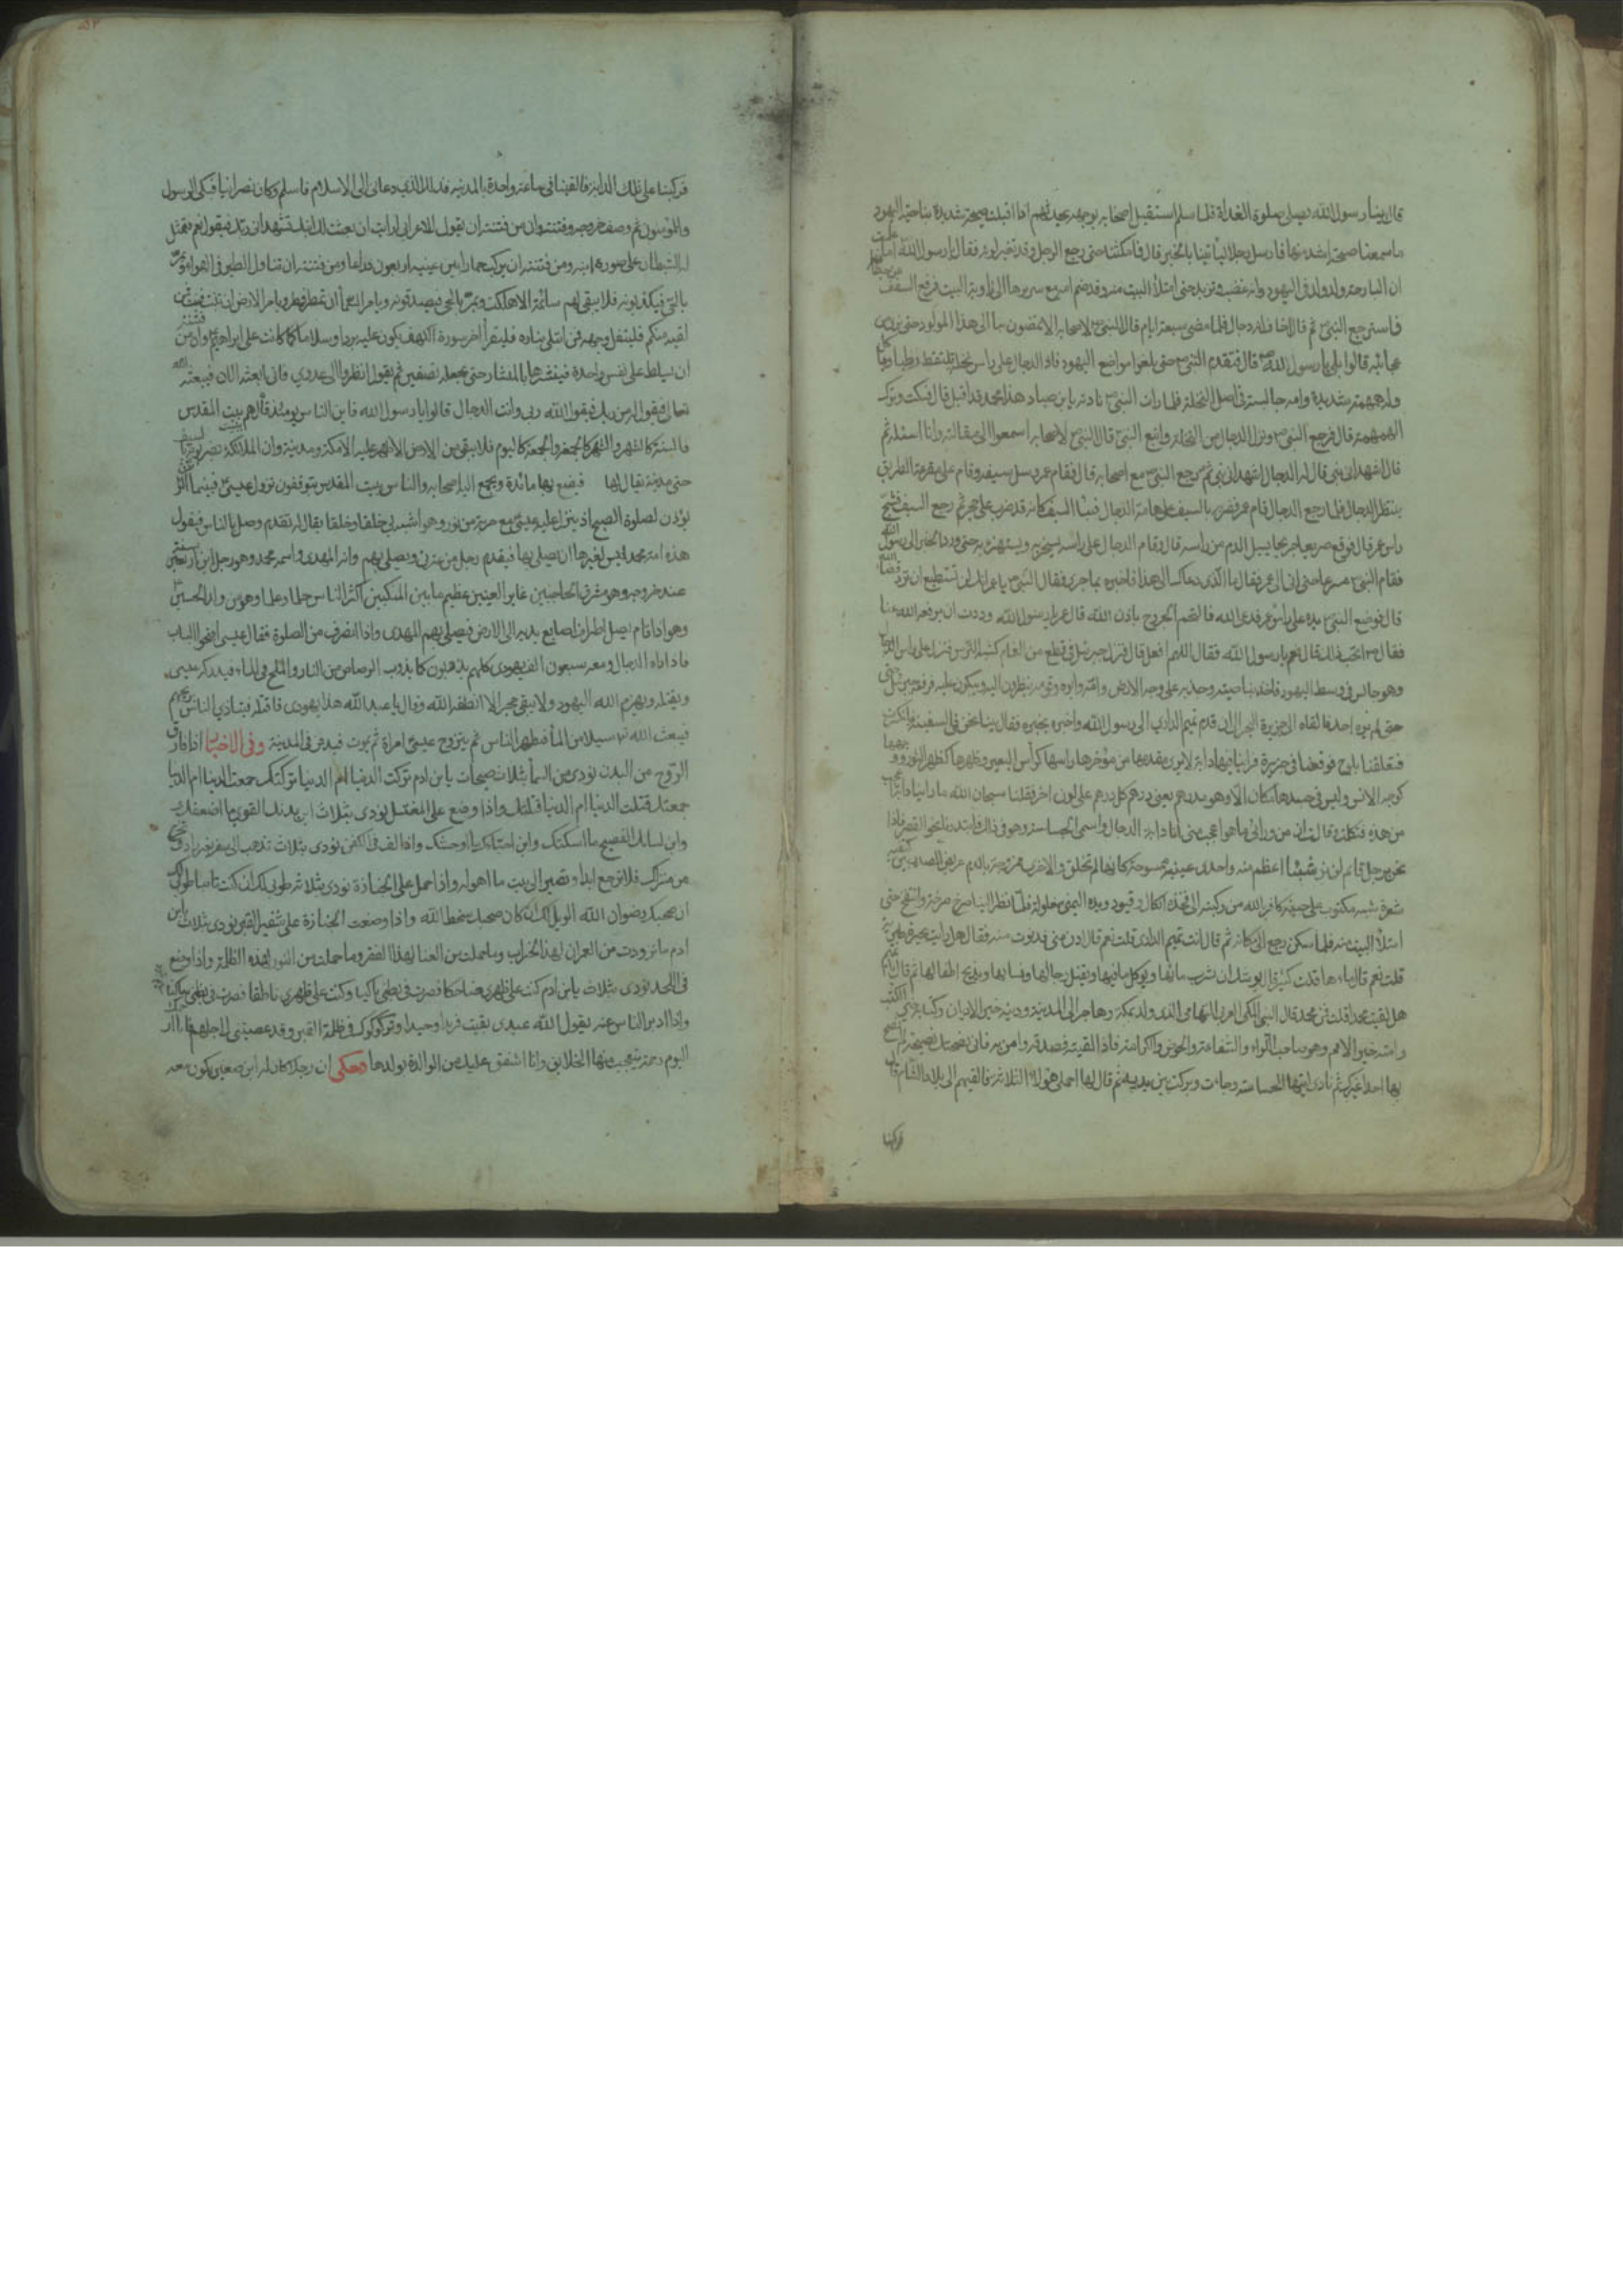 قال بينا رسول الله يصلى صلوة الغداة فلما سلم استقبل اصحابه بوجهه يحدثهم اذا اقبلت صيحة شديدة بناحية اليهود
ما سمعنا صيحة اشد منها فارسل رجلا ليأتينا بالخبر قال فما مكثنا حتى رجع الرجل وقد تغير لونه فقال يا رسول الله اما علمت
ان البارحة ولد ولد فى اليهود وانه غضب وتزبد حتى امتلأ البيت منه وقد ضم امه مع سريرها الى زاوية البيت فرفع السقف
فاسترجع النبى ثم قال اخاف انه دجال فلما مضى سبعة ايام قال النبى لاصحابه الا تمضون بنا الى هذا المولود حتى نرى من
عجائبه قالوا بلى يا رسول الله قال فتقدم النبى حتى بلغوا مواضع اليهود فاذا الدجال على راس نخلة يلتقط رطبا
وله همهمة شديدة وامه جالسة فى اصل النخلة فلما رات النبى نادته يا بن صياد هذا محمد قد اقبل قال فسكت وترك
الهمهمة قال فرجع النبى ونزل الدجال من النخلة واتبع النبى قال النبى لاصحابه اسمعوا الى مقالته وانا اسئله ثم
قال اشهد انى نبى قال له الدجال اشهد انى نبى ثم رجع النبى مع اصحابه قال فقام عمر وسل سيفه وقام على مقرعة الطريق
ينتظر الدجال فلما رجع الدجال قام عمر فضربه بالسيف على هامة الدجال فنبا السيف كانه قد ضرب على حجر ثم رجع السيف فشج
راس عمر قال فوقع صريعا جريحا يسيل الدم من راسه قال وقام الدجال على راسه يسخر به ويستهزء به حتى ورد الخبر الى رسول الله
فقام النبى مسرعا حتى اتى الى عمر فقال ما الذى دعاك الى هذا فاخبره بما جرى فقال النبى يا عمر انك لن تستطيع ان ترد قضاء الله
قال فوضع النبى يده على راس عمر فدعى الله فالتحم الجروح باذن الله قال عمر يا رسول الله وددت ان يرفعه الله عنا
فقال اتحب ذلك قال نعم يا رسول الله فقال اللهم افعل قال فنزل جبرئيل فى قطع من الغمام كشبه الترس فنزل على راس الدجال
وهو جالس فى وسط اليهود فاخذ بناصيته وجذبه على وجه الارض وامه وابوه وقومه ينظرون اليه ويبكون عليه فرفعه جبرئيل
حتى لم يره احد فالقاه الى جزيرة البحر الى ان قدم تميم الدارى الى رسول الله واخبره بخبره فقال بينا نحن فى السفينة وانكسرت
فتعلقنا بلوح فوقعنا فى جزيرة فراينا فيها دابة لا يرى مقدمها من مؤخرها راسها كراس البعير وظهرها كظهر الثور ووجهها
كوجه الانس وليس فى جسدها مكان الا وهو مدرهم يعنى درهم كل درهم على لون اخر فقلنا سبحان الله ما راينا دابة اعجب
من هذه فتكلمت وقالت ان من ورائى ما هو اعجب منى انا دابة الدجال واسمى الجساسة وهو فى ذاك فابتدرنا نحو القصر فاذا
نحن برجل قائم لن نر شيئا اعظم منه واحدى عينيه ممسوحة كانها لم تخلق والاخرى ممزوجة بالدم عريض الصدر بين كتفيه
شعرة شبه مكتوب على جبينه كافر بالله من ركبته الى فخذه انكال وقيود ويده اليمنى مغلولة فلما نظر الينا صرخ صرخة وانتفخ حتى
امتلأ البيت منه فلما سكن رجع الى مكانه ثم قال انت تميم الدارى قلت نعم قال ادن منى فدنوت منه فقال هل رايت بحيرة طبرية
قلت نعم قال ماءها قلت كثير قال يوشك ان تشرب مائها ويوكل ما فيها ويقتل رجالها ونسائها ويذبح اطفالها ثم قال
هل لقيت محمدا قلت من محمد قال النبى المكى العربى التهامى الذى ولد بمكة وهاجر الى المدينة ودينه خير الاديان وكتابه خير الكتب
وامته خير الامم وهو صاحب اللواء والشفاعة والحوض والكرامة فاذا لقيته فصدقه وامن به فانى نصحتك نصيحة لم انصح
بها احدا غيرك ثم نادى ايتها الجساسة وجاءت وبركت بين يديه ثم قال لها احملى هؤلاء الثلاثة فالقيهم الى بلاد الشام قال
فركبنا
فركبنا على تلك الدابة فالقينا فى ساعة واحدة بالمدينة فذلك الذى دعانى الى الاسلام فاسلم وكان نصرانيا فبكى الرسول
والمؤمنون ثم وصف خروجه وفتنته وان من فتنته ان يقول للاعرابى ارايت ان بعثت لك ابيك تشهد ان ربك فيقول نعم فيتمثل
له الشيطان على صورة ابيه ومن فتنته ان يركب حمارا بين عينيه اربعون ذراعا ومن فتنته ان تناول الطير فى الهواء
بالحى فيكذبونه فلا يبقى لهم سائمة الا هلكت ويمر بالحى فيصدقونه ويامر السماء ان تمطر فمطر ويامر الارض ان تنبت فتنبت فمن
لقيه منكم فليتفل وجهه فمن ابتلى بناره فليقرأ اخر سورة الكهف يكون عليه بردا وسلاما كما كانت على ابراهيم وان من فتنته
ان يسلط على نفس واحدة فينشرها بالمنشار حتى يجعله نصفين ثم يقول انظروا الى عبدى فانى ابعثه الان فيبعثه الله
تعالى فيقول له من ربك فيقول الله ربى وانت الدجال قالوا يا رسول الله فاين الناس يومئذ قال هم ببيت المقدس
فالسنة كالشهر والشهر كالجمعة والجمعة كاليوم فلا يبقى من الارض الا ظهر عليه الا مكة ومدينة وان الملائكة تضربونه بالسيف
حتى مدينة يقال لها فيضع بها مائدة ويجمع اليه اصحابه والناس ببيت المقدس يتوقعون نزول عيسى فبينما
يؤذن لصلوة الصبح اذ ينزل عليه عيسى مع حربة من نور وهو اشبه بى خلقا وخلقا يقال له تقدم وصل بالناس فيقول
هذه امة محمد ليس لغيرها ان يصلى بها فيقدم رجل من عترتى ويصلى بهم وانه المهدى واسمه محمد وهو رجل ابن اربعين سنة
عند خروجه وهو مشرق الحاجبين غاير العينين عظيم ما بين المنكبين اكثر الناس حلما وعلما وهو من ولد الحسين
وهو اذا قام يصل اطراف اصابع يديه الى الارض فيصلى بهم المهدى واذا انصرف من الصلوة فقال عيسى افتحوا الباب
فاذا اتاه الدجال ومعه سبعون الف يهودى كلهم يذهبون كما يذوب الرصاص من النار والملح فى الماء فيدركه عيسى
ويقتله ويهزم الله اليهود ولا يبقى حجر الا انطقه الله وقال يا عبد الله هذا يهودى فاقتله فيتاذى الناس بريحهم
فيبعث الله سيلا من الماء فطهر الناس ثم يتزوج عيسى امراة ثم يموت فيدفن فى المدينة وفى الاخبار اذا فارق
الروح من البدن نودى من السماء بثلاث صيحات يا بن ادم تركت الدنيا ام الدنيا تركتك جمعت الدنيا ام الدنيا
جمعتك قتلت الدنيا ام الدنيا قتلتك واذا وضع على المغتسل نودى بثلاث اين بدنك القوى ما اضعفك
واين لسانك الفصيح ما اسكتك واين احباؤك ما اوحشك واذا لف فى الكفن نودى بثلاث تذهب الى سفر بغير زاد وتخرج
من منزلك فلا ترجع ابدا وتصير الى بيت ما اهوله واذا حمل على الجنازة نودى بثلاثة طوبى لك ان كنت تائبا طوبى لك
ان صحبك رضوان الله الويل لك ان كان صحبك سخط الله واذا وضعت الجنازة على شفير القبر نودى بثلاث يا بن
ادم ما تزودت من العمران لهذا الخراب وما حملت من الغنا لهذا الفقر وما حملت من النور لهذه الظلمة واذا وضع
فى اللحد نودى بثلاث يا بن ادم كنت على ظهرى ضاحكا فصرت فى بطنى باكيا وكنت على ظهرى ناطقا فصرت فى بطنى ساكتا
واذا ادبر الناس عنه يقول الله عبدى بقيت فريدا وحيدا وتركوك فى ظلمة القبر وقد عصيتنى لاجلهم فانا ارحمك
اليوم رحمة تتعجب منها الخلايق وانا اشفق عليك من الوالدة بولدها وحكى ان رجلا كان له ابن صغير يكون معه